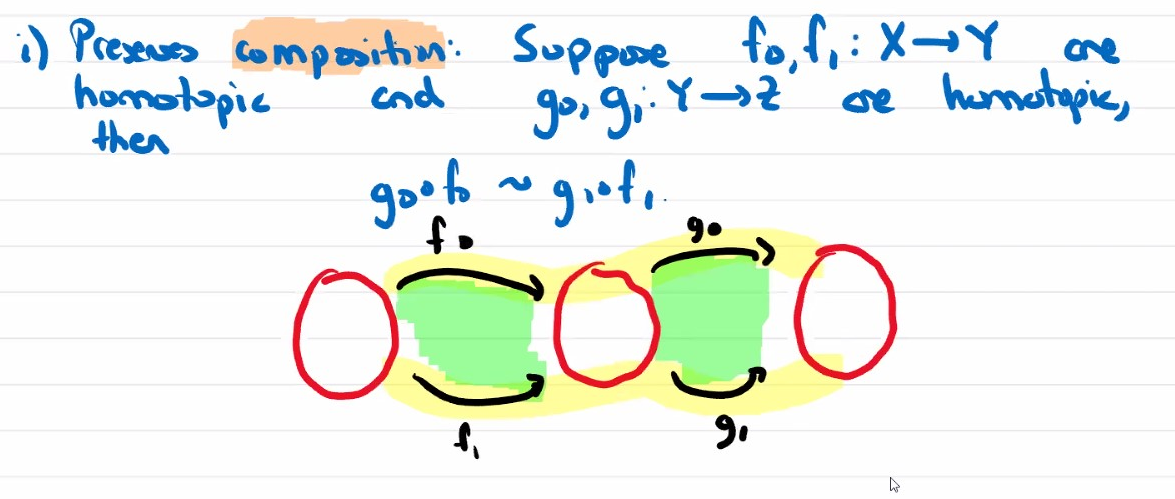 i) Preserves composition: Suppose f₀, f₁ : X → Y are
homotopic and g₀, g₁ : Y → Z are homotopic,
then
g₀∘f₀ ~ g₁∘f₁.
f₀ g₀
f₁ g₁